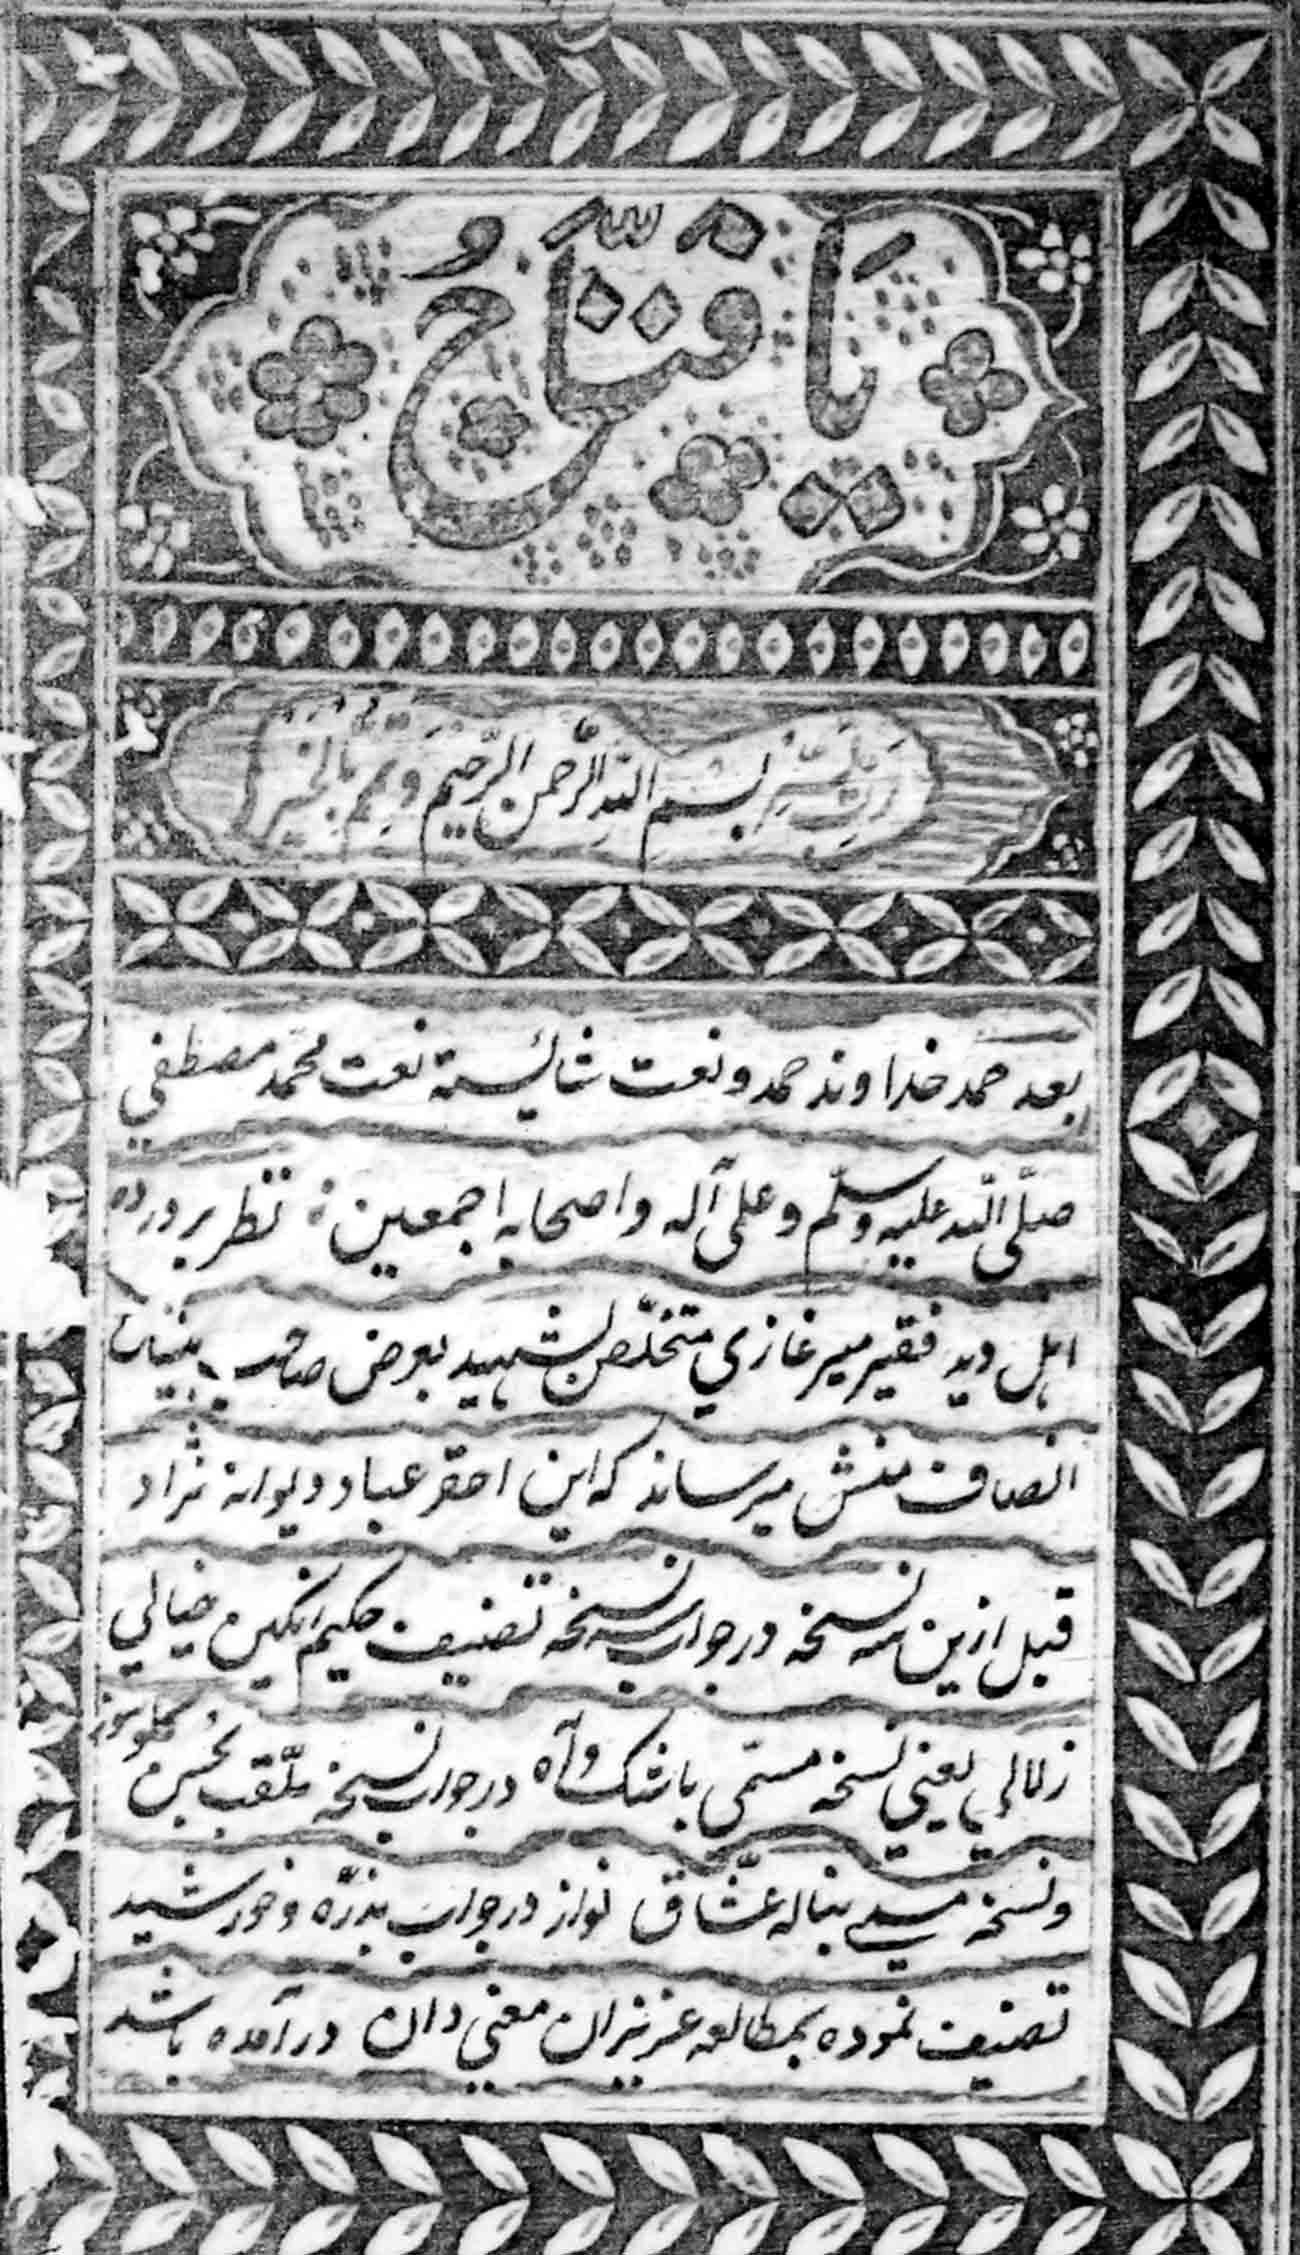 یا فتاح
رب یسر بسم الله الرحمن الرحیم و تمم بالخیر
بعد حمد خداوند حمد و نعت شائیسته نعت محمد مصطفی
صلّی اللّه علیه وسلّم و علی آله و اصحابه اجمعین نظر پرورده
اهل دید فقیر میر غازی متخلّص بشهید بعرض صاحب بینشان
انصاف منش میرساند که این احقر عباد دیوانه نژاد
قبل ازین سه نسخه در جواب سه نسخه تصنیف حکیم انگین خیالی
زلالی یعنی نسخه مسمّی باشک و آه در جواب نسخه ملّقب بحسن گلوسوز
و نسخه مسمی بناله عشّاق نواز در جواب بذرّه و خورشید
تصنیف نموده بمطالعه عزیزان معنی دان در آمده باشد